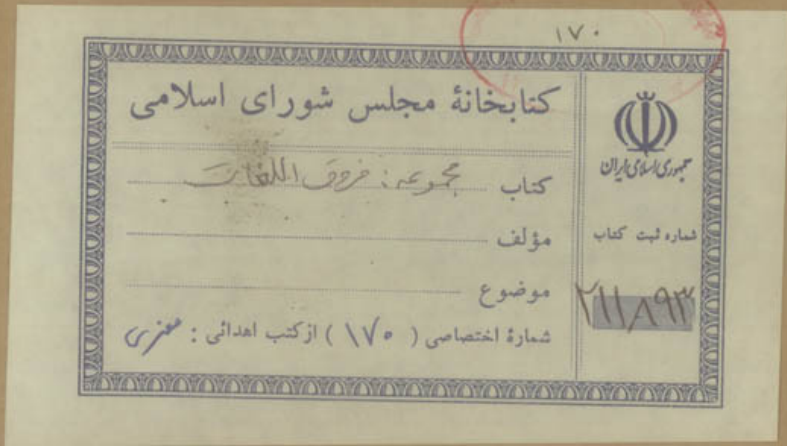 ۱۷۰
کتابخانهٔ مجلس شورای اسلامی
کتاب مجموعه: فروق اللغات
مؤلف
موضوع
شمارهٔ اختصاصی ( ۱۷۰ ) از کتب اهدائی :
جمهوری اسلامی ایران
شماره ثبت کتاب
۲۱۱۸۹۳